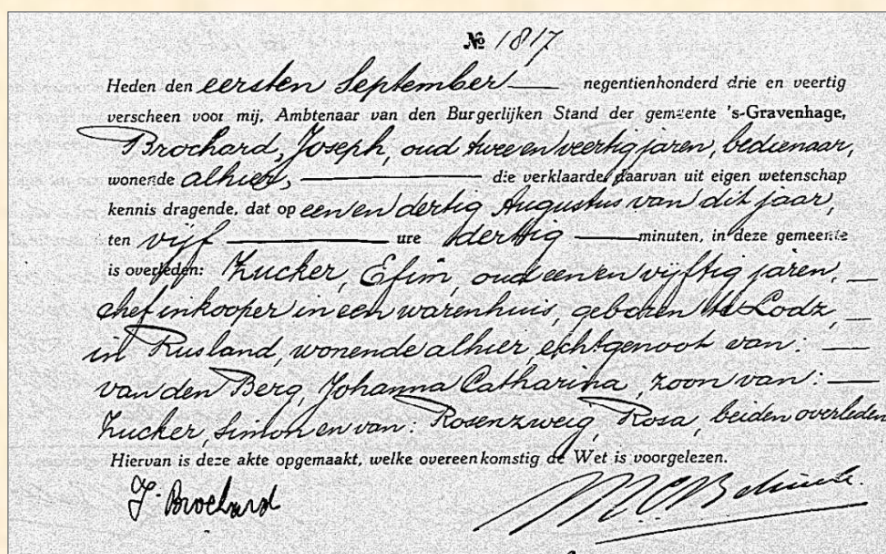 № 1817
Heden den eersten September negentienhonderd drie en veertig
verscheen voor mij, Ambtenaar van den Burgerlijken Stand der gemeente 's-Gravenhage,
Brochard, Joseph, oud twee en veertig jaren, bedienaar,
wonende alhier, die verklaarde, daarvan uit eigen wetenschap
kennis dragende, dat op een en dertig Augustus van dit jaar,
ten vijf ure dertig minuten, in deze gemeente
is overleden: Zucker, Efim, oud een en vijftig jaren,
chef inkooper in een warenhuis, geboren te Lodz,
in Rusland, wonende alhier, echtgenoot van:
van den Berg, Johanna Catharina, zoon van:
Zucker, Simon en van: Rosenzweig, Rosa, beiden overleden
Hiervan is deze akte opgemaakt, welke overeenkomstig de Wet is voorgelezen.
J. Brochard